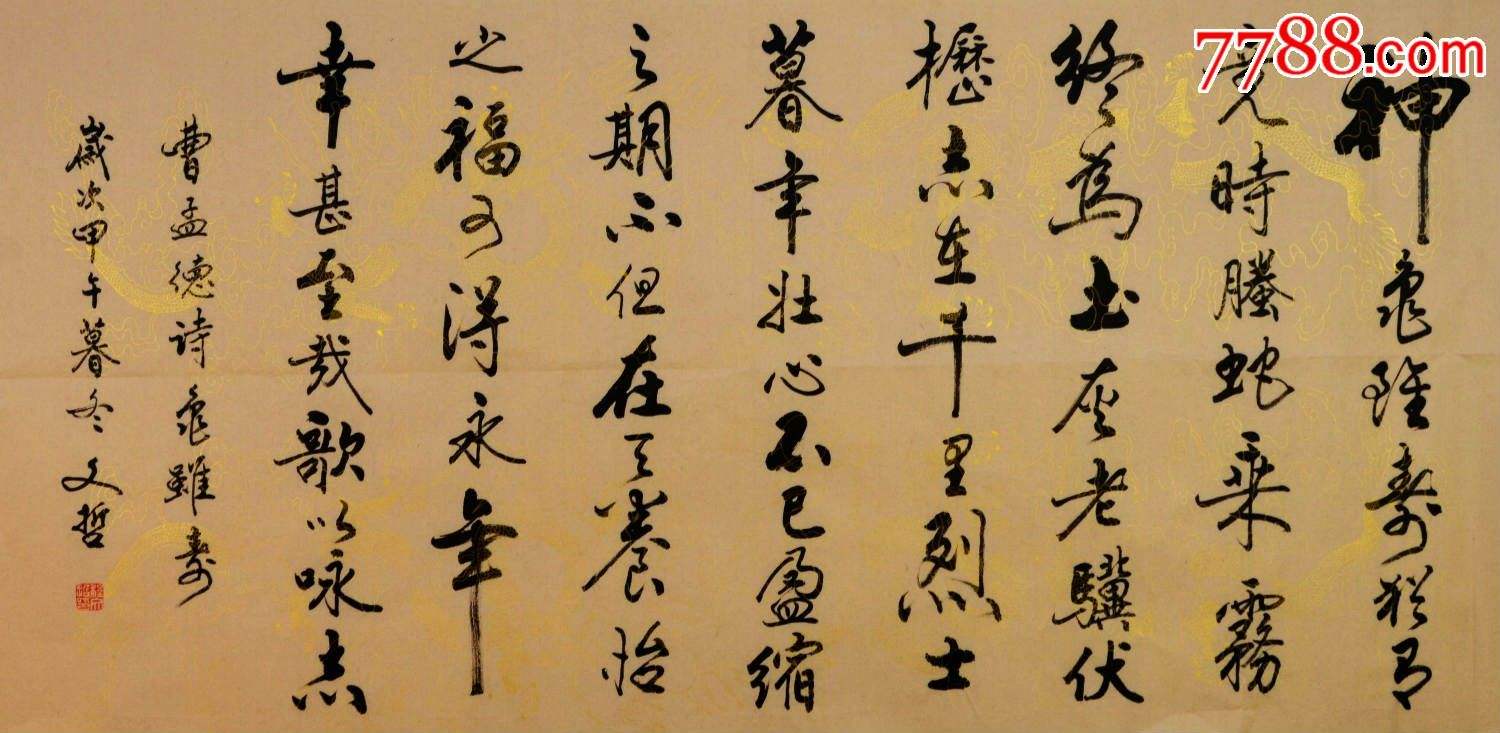 7788.com
神龜雖壽猶有
竟時螣蛇乘霧
終為土灰老驥伏
櫪志在千里烈士
暮年壯心不已盈縮
之期不但在天養怡
之福可得永年
幸甚至哉歌以咏志
曹孟德詩龜雖壽
歲次甲午暮冬文哲